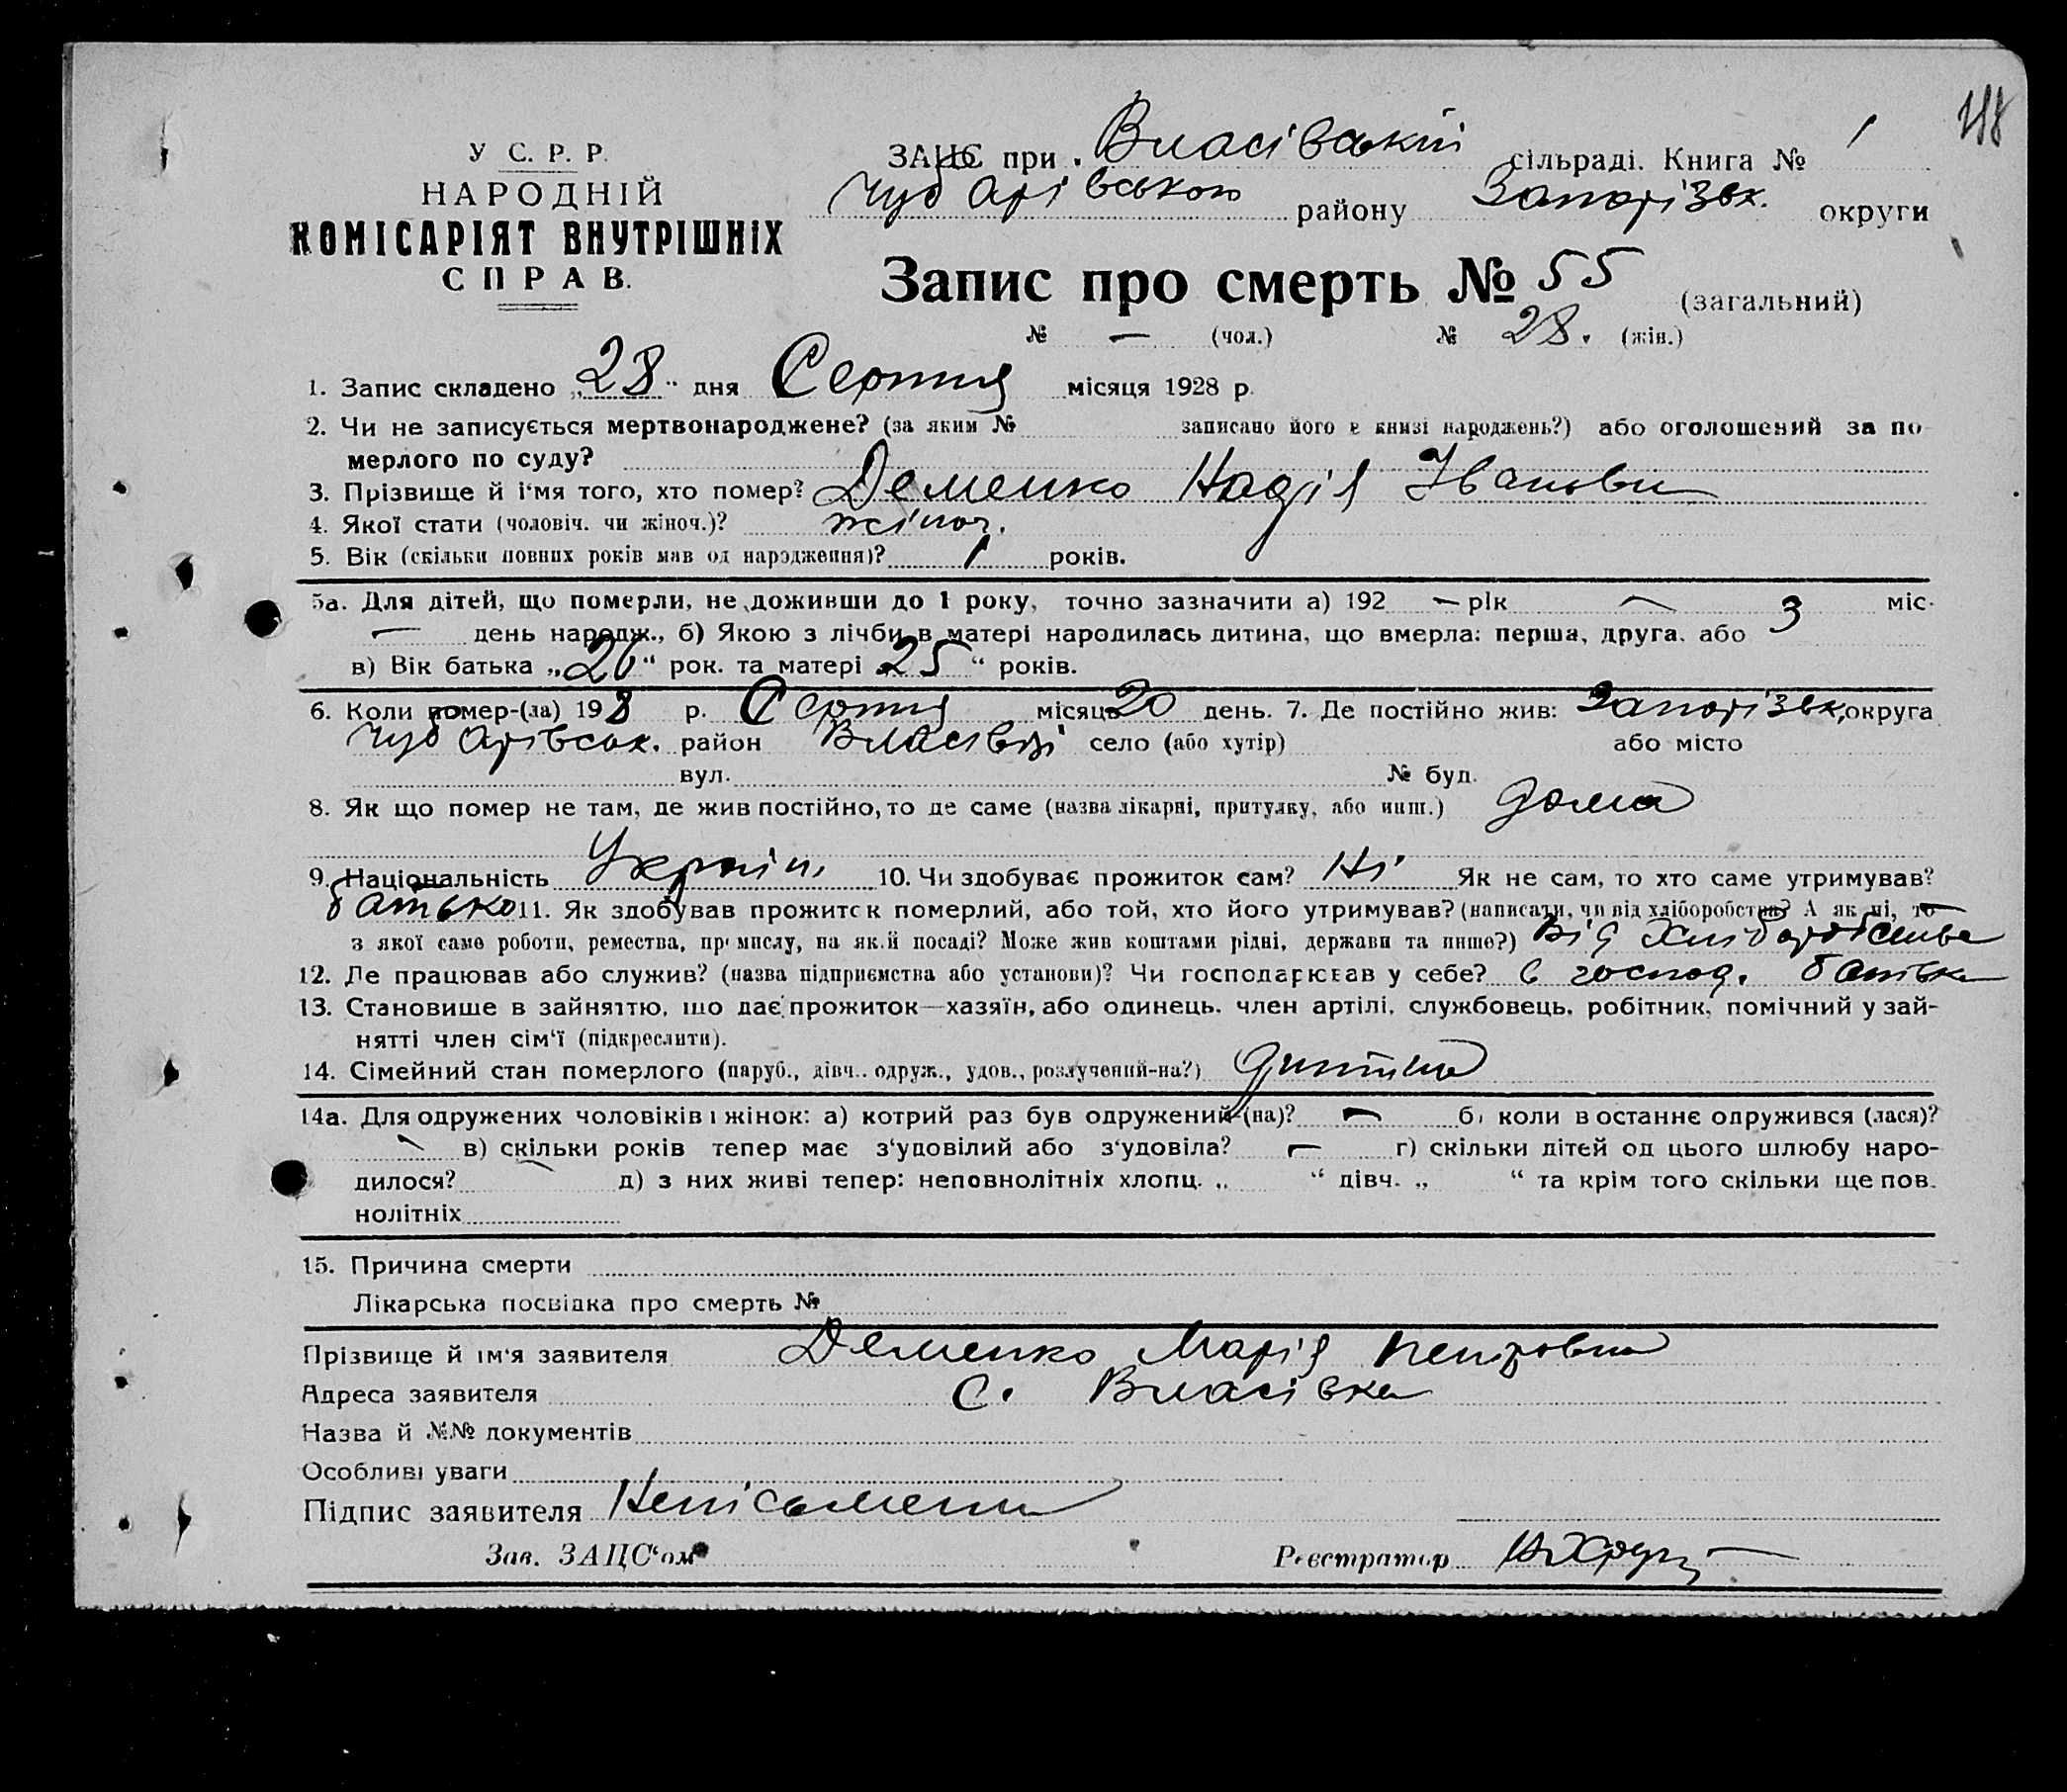 У С. Р. Р.
НАРОДНІЙ
КОМІСАРІЯТ ВНУТРІШНІХ
СПРАВ.
ЗАЦС при Власівській сільраді. Книга № 1
Чубарівського району Запорізьк. округи
Запис про смерть № 55 (загальний)
№ — (чол.) № 28. (жін.)
1. Запис складено „28" дня Серпня місяця 1928 р.
2. Чи не записується мертвонароджене? (за яким № записано його в книзі народжень?) або оголошений за по
мерлого по суду?
3. Прізвище й і'мя того, хто помер? Деменко Надія Івановн
4. Якої стати (чоловіч. чи жіноч.)? жіноч.
5. Вік (скільки повних років мав од народження)? 1 років.
5а. Для дітей, що померли, не доживши до 1 року, точно зазначити а) 192 — рік — міс.
— день народж., б) Якою з лічби в матері народилась дитина, що вмерла: перша, друга. або 3
в) Вік батька „26" рок. та матері „25" років.
6. Коли помер-(ла) 198 р. Серпня місяця 20 день. 7. Де постійно жив: Запорізьк, округа
Чубарівськ. район Власівці село (або хутір) або місто
вул. № буд.
8. Як що помер не там, де жив постійно, то де саме (назва лікарні, притулку, або инш.) дома
9. Національність Україн, 10. Чи здобуває прожиток сам? Ні Як не сам, то хто саме утримував?
батько 11. Як здобував прожиток померлий, або той, хто його утримував? (написати, чи від хліборобства? А як ні, то
з якої саме роботи, ремества, промислу, на якій посаді? Може жив коштами рідні, держави та инше?) Від Хліборобства
12. Де працював або служив? (назва підприємства або установи)? Чи господарював у себе? в господ. батька
13. Становище в зайняттю, що дає прожиток—хазяїн, або одинець. член артілі, службовець, робітник, помічний у зай-
нятті член сім'ї (підкреслити).
14. Сімейний стан померлого (паруб., дівч.. одруж., удов., розлучений-на?) дитина
14а. Для одружених чоловіків і жінок: а) котрий раз був одружений-(на)? — б) коли в останнє одружився (лася)?
в) скільки років тепер має з'удовілий або з'удовіла? — г) скільки дітей од цього шлюбу наро-
дилося? д) з них живі тепер: неповнолітніх хлопц. „ " дівч. „ " та крім того скільки ще пов.
нолітніх
15. Причина смерти
Лікарська посвідка про смерть №
Прізвище й ім'я заявителя Деменко Марія Петровна
Адреса заявителя С. Власівка
Назва й №№ документів
Особливі уваги
Підпис заявителя Непісьменн
Зав. ЗАЦС'ом Реєстратор